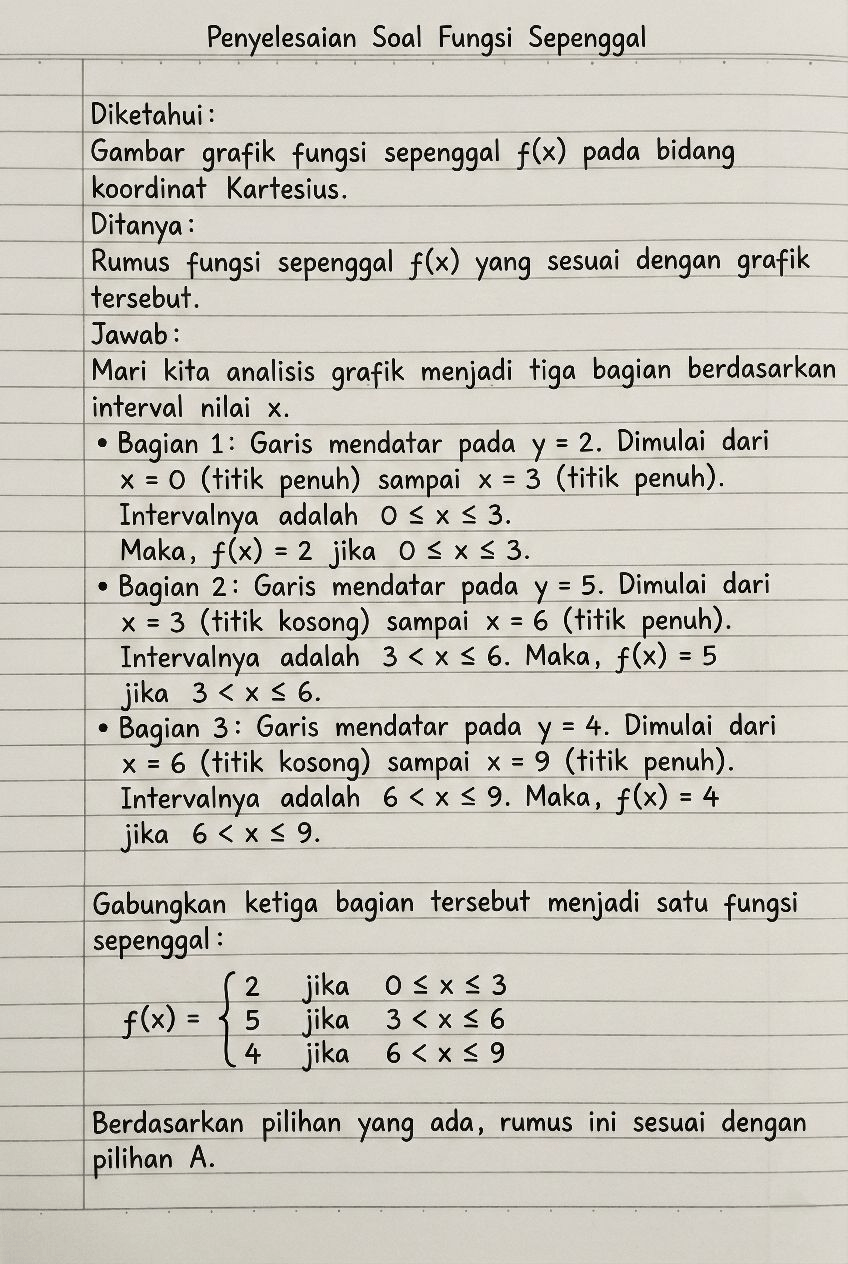 Penyelesaian Soal Fungsi Sepenggal
Diketahui:
Gambar grafik fungsi sepenggal f(x) pada bidang
koordinat Kartesius.
Ditanya:
Rumus fungsi sepenggal f(x) yang sesuai dengan grafik
tersebut.
Jawab:
Mari kita analisis grafik menjadi tiga bagian berdasarkan
interval nilai x.
• Bagian 1: Garis mendatar pada y = 2. Dimulai dari
x = 0 (titik penuh) sampai x = 3 (titik penuh).
Intervalnya adalah 0 ≤ x ≤ 3.
Maka, f(x) = 2 jika 0 ≤ x ≤ 3.
• Bagian 2: Garis mendatar pada y = 5. Dimulai dari
x = 3 (titik kosong) sampai x = 6 (titik penuh).
Intervalnya adalah 3 < x ≤ 6. Maka, f(x) = 5
jika 3 < x ≤ 6.
• Bagian 3: Garis mendatar pada y = 4. Dimulai dari
x = 6 (titik kosong) sampai x = 9 (titik penuh).
Intervalnya adalah 6 < x ≤ 9. Maka, f(x) = 4
jika 6 < x ≤ 9.
Gabungkan ketiga bagian tersebut menjadi satu fungsi
sepenggal:
2 jika 0 ≤ x ≤ 3
f(x) = { 5 jika 3 < x ≤ 6
4 jika 6 < x ≤ 9
Berdasarkan pilihan yang ada, rumus ini sesuai dengan
pilihan A.